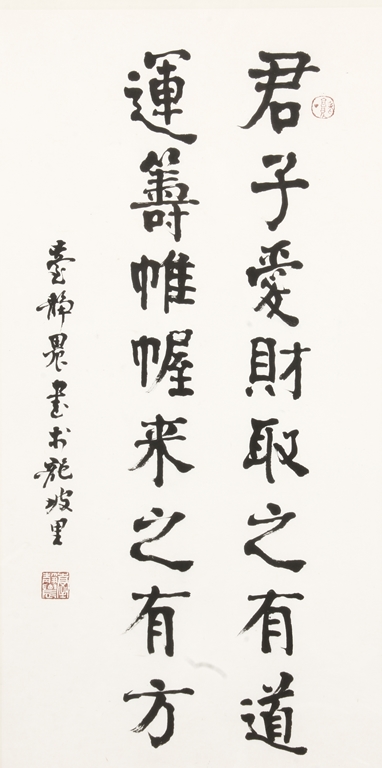 君子愛財取之有道
運籌帷幄来之有方
臺静農書於龍坡里